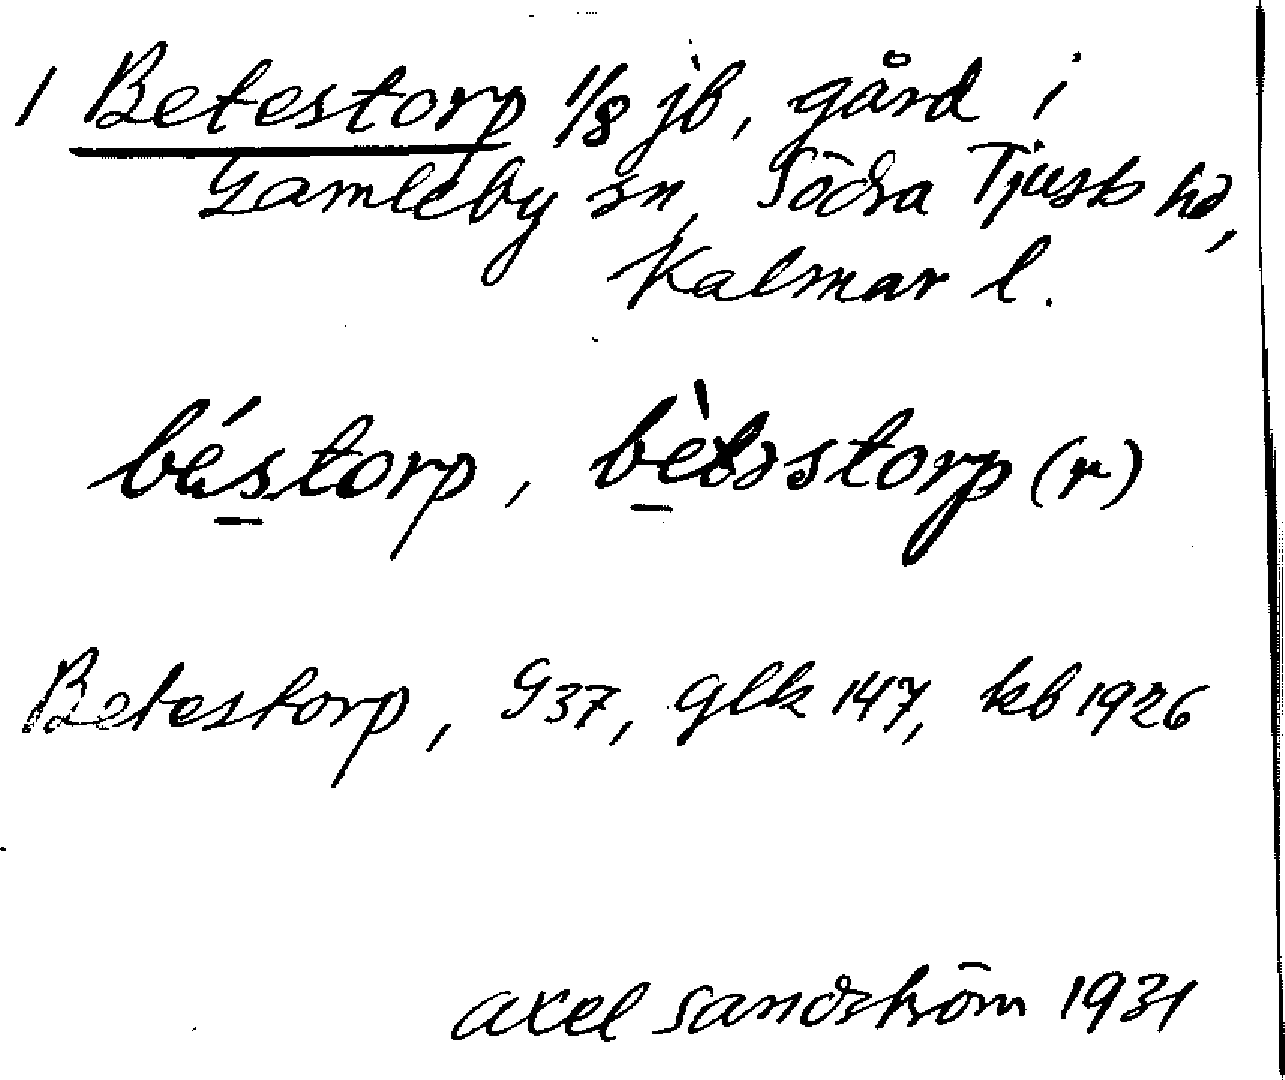 1 Betestorp 1/8 jb, gård i
Gamleby sn, Södra Tjusts hd,
Kalmar l.
béstorp, bètəstorp (r)
Betestorp, G37, glk 147, kb 1926
Axel Sandström 1931